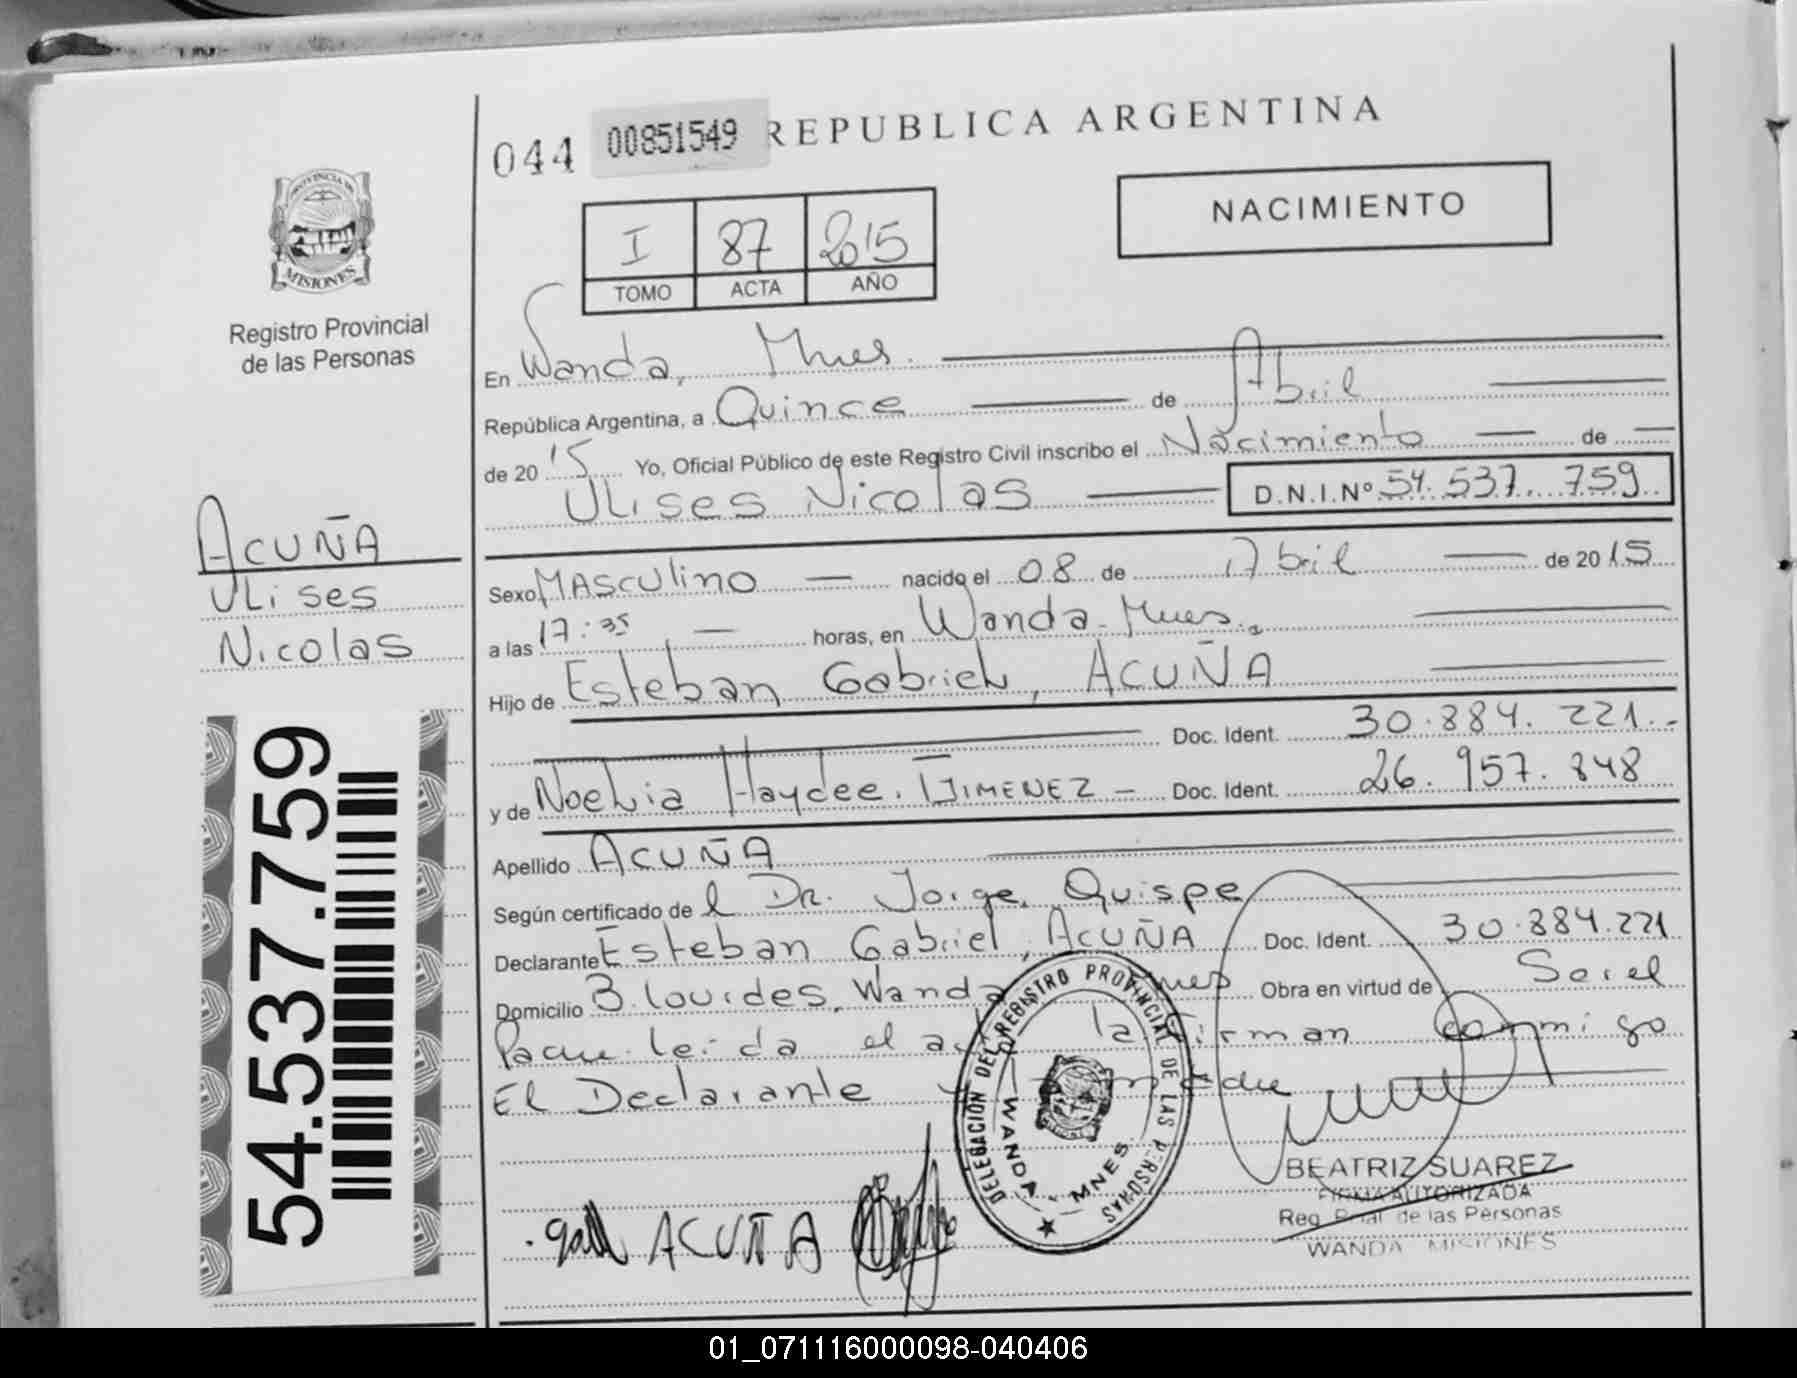 044 00851549 REPUBLICA ARGENTINA
PROVINCIA DE MISIONES
Registro Provincial
de las Personas
NACIMIENTO
I 87 2015
TOMO ACTA AÑO
En Wanda, Mnes.
República Argentina, a Quince de Abril
de 2015 Yo, Oficial Público de este Registro Civil inscribo el Nacimiento de
Ulises Nicolas D.N.I.Nº 54.537.759
ACUÑA
Ulises
Nicolas
54.537.759
Sexo Masculino nacido el 08 de Abril de 2015
a las 17:35 horas, en Wanda Mnes.
Hijo de Esteban Gabriel, ACUÑA
Doc. Ident. 30.884.221
y de Noelia Haydee. JIMENEZ Doc. Ident. 26.957.848
Apellido ACUÑA
Según certificado del Dr. Jorge Quispe
Declarante Esteban Gabriel, ACUÑA Doc. Ident. 30.884.221
Domicilio B. Lourdes, Wanda Mnes Obra en virtud de Ser el
Padre. Leida el la firman conmigo
El Declarante y madre
DELEGACIÓN DEL REGISTRO PROVINCIAL DE LAS PERSONAS
WANDA - MNES
ACUÑA
BEATRIZ SUAREZ
FIRMA AUTORIZADA
Reg. Pcial. de las Personas
WANDA MISIONES
01_071116000098-040406